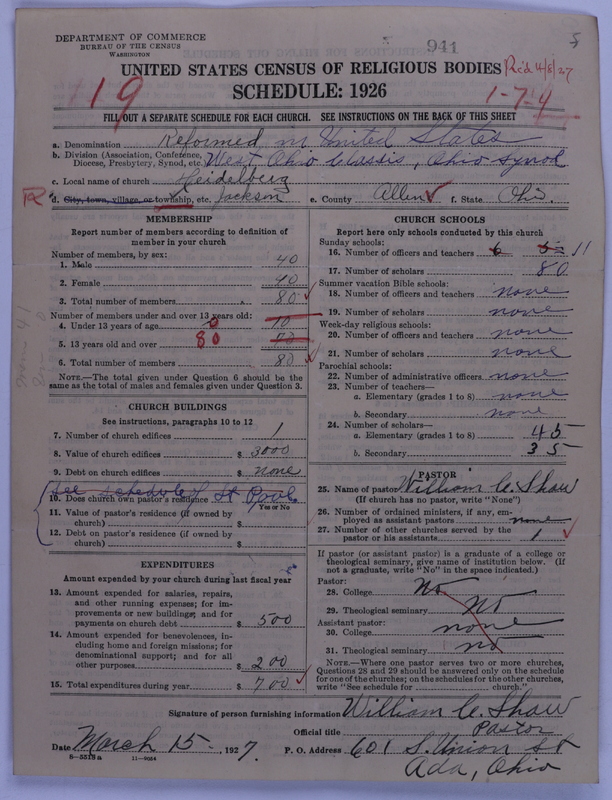 DEPARTMENT OF COMMERCE
BUREAU OF THE CENSUS
WASHINGTON
941
5
UNITED STATES CENSUS OF RELIGIOUS BODIES
Rc'd 4/8/27
SCHEDULE: 1926
19
1-7-4
FILL OUT A SEPARATE SCHEDULE FOR EACH CHURCH. SEE INSTRUCTIONS ON THE BACK OF THIS SHEET
a. Denomination Reformed in United States
b. Division (Association, Conference, Diocese, Presbytery, Synod, etc.) West Ohio Classis, Ohio Synod
c. Local name of church Heidelberg
R d. City, town, village, or township, etc. Jackson e. County Allen f. State Ohio.
MEMBERSHIP
Report number of members according to definition of member in your church
Number of members, by sex:
1. Male 40
2. Female 40
3. Total number of members 80
Number of members under and over 13 years old:
4. Under 13 years of age 0 10
5. 13 years old and over 80 70
6. Total number of members 80
NOTE.—The total given under Question 6 should be the same as the total of males and females given under Question 3.
CHURCH BUILDINGS
See instructions, paragraphs 10 to 12
7. Number of church edifices 1
8. Value of church edifices $ 3000
9. Debt on church edifices $ none
see schedule of St Paul
10. Does church own pastor's residence
Yes or No
11. Value of pastor's residence (if owned by church) $
12. Debt on pastor's residence (if owned by church) $
EXPENDITURES
Amount expended by your church during last fiscal year
13. Amount expended for salaries, repairs, and other running expenses; for improvements or new buildings; and for payments on church debt $ 500
14. Amount expended for benevolences, including home and foreign missions; for denominational support; and for all other purposes $ 200
15. Total expenditures during year $ 700
CHURCH SCHOOLS
Report here only schools conducted by this church
Sunday schools:
16. Number of officers and teachers 6 5 = 11
17. Number of scholars 80
Summer vacation Bible schools:
18. Number of officers and teachers none
19. Number of scholars none
Week-day religious schools:
20. Number of officers and teachers none
21. Number of scholars none
Parochial schools:
22. Number of administrative officers none
23. Number of teachers—
a. Elementary (grades 1 to 8) none
b. Secondary none
24. Number of scholars—
a. Elementary (grades 1 to 8) 45
b. Secondary 35
PASTOR
25. Name of pastor William C. Shaw
(If church has no pastor, write "None")
26. Number of ordained ministers, if any, employed as assistant pastors none
27. Number of other churches served by the pastor or his assistants 1
If pastor (or assistant pastor) is a graduate of a college or theological seminary, give name of institution below. (If not a graduate, write "No" in the space indicated.)
Pastor:
28. College No
29. Theological seminary No
Assistant pastor:
30. College none
31. Theological seminary no
NOTE.—Where one pastor serves two or more churches, Questions 28 and 29 should be answered only on the schedule for one of the churches; on the schedules for the other churches, write "See schedule for church."
Signature of person furnishing information William C. Shaw
Official title Pastor
Date March 15-, 1927. P. O. Address 601 S. Union st
Ada, Ohio
8—5518a 11—9054